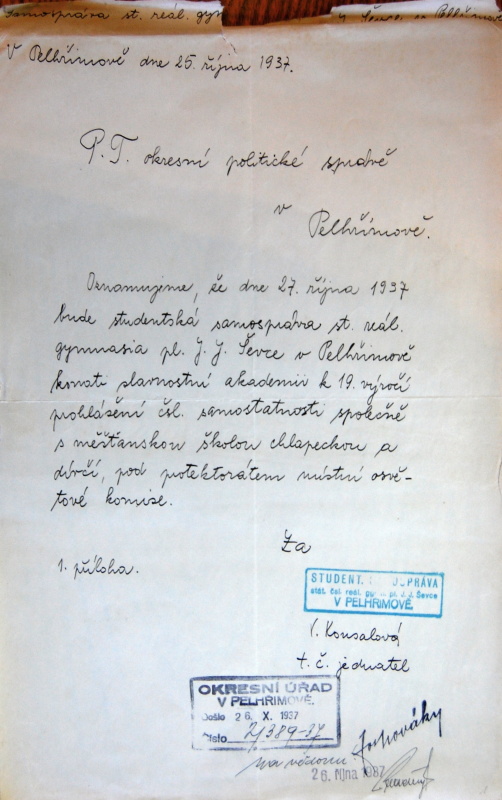 Samospráva st. reál. gym J. Ševce v Pelhřimově
V Pelhřimově dne 25. října 1937.
P. T. okresní politické správě
v
Pelhřimově.
Oznamujeme, že dne 27. října 1937
bude studentská samospráva st. reál.
gymnasia pl. J. J. Ševce v Pelhřimově
konati slavnostní akademii k 19. výročí
prohlášení čsl. samostatnosti společně
s měšťanskou školou chlapeckou a
dívčí, pod protektorátem místní osvě-
tové komise.
Za
1. příloha.
STUDENT. SAMOSPRÁVA
stát. čsl. reál. gym. pl. J. J. Ševce
V PELHŘIMOVĚ.
V. Kousalová
t. č. jednatel
OKRESNÍ ÚŘAD
V PELHŘIMOVĚ.
Došlo 26. X. 1937
Číslo 21389-37
na vědomí
26. října 1937